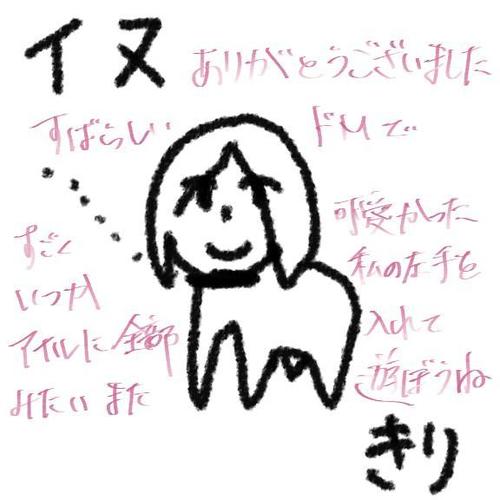 イヌ
ありがとうございました
すばらしい
ドMで
すごく
可愛かった
いつか
私の左手を
アイルに全部
入れて
みたいまた
遊ぼうね
きり